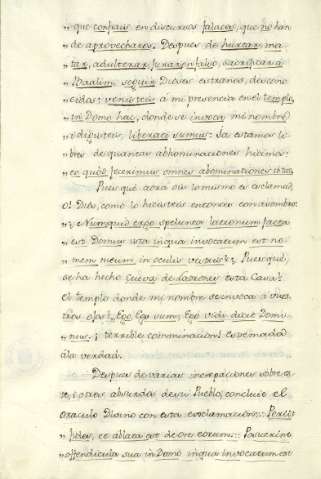 „que confiais en discursos falaces, que no han
„de aprovecharos. Despues de hurtar, ma
„tar, adulterar, jurar en falso, sacrificar á
„Baalim, seguir Dioses extraños, descono
„cidos; venisteis á mi presencia en el templo,
„in Domo hac, donde se invoca mi nombre,
„y dijisteis, liberati sumus: Ya estamos li
„bres de quantas abhominaciones hicimos:
„eo quòd fecerimus omnes abominationes istas.
Pues qué acaso
O! Dios, como lo hicisteis entonces con asombro:
„Numquid ergo spelunca latronum facta
„est Domus ista in qua invocatum est no
„men meum in oculis vestris? Pues qué,
„se ha hecho Cueva de Ladrones esta Casa?
El templo donde mi nombre se invoca á vues
tros ojos? Ego, Ego sum, Ego vidi dicit Domi
nus, ¡terrible comminacion!
á la verdad.
Despues de varias increpaciones sobre
su Pueblo, concluie el
Oraculo Divino con esta exclamacion: Periit
„fides, et ablata est de ore eorum. Posuerunt
„offendicula sua in Domo in qua invocatum est